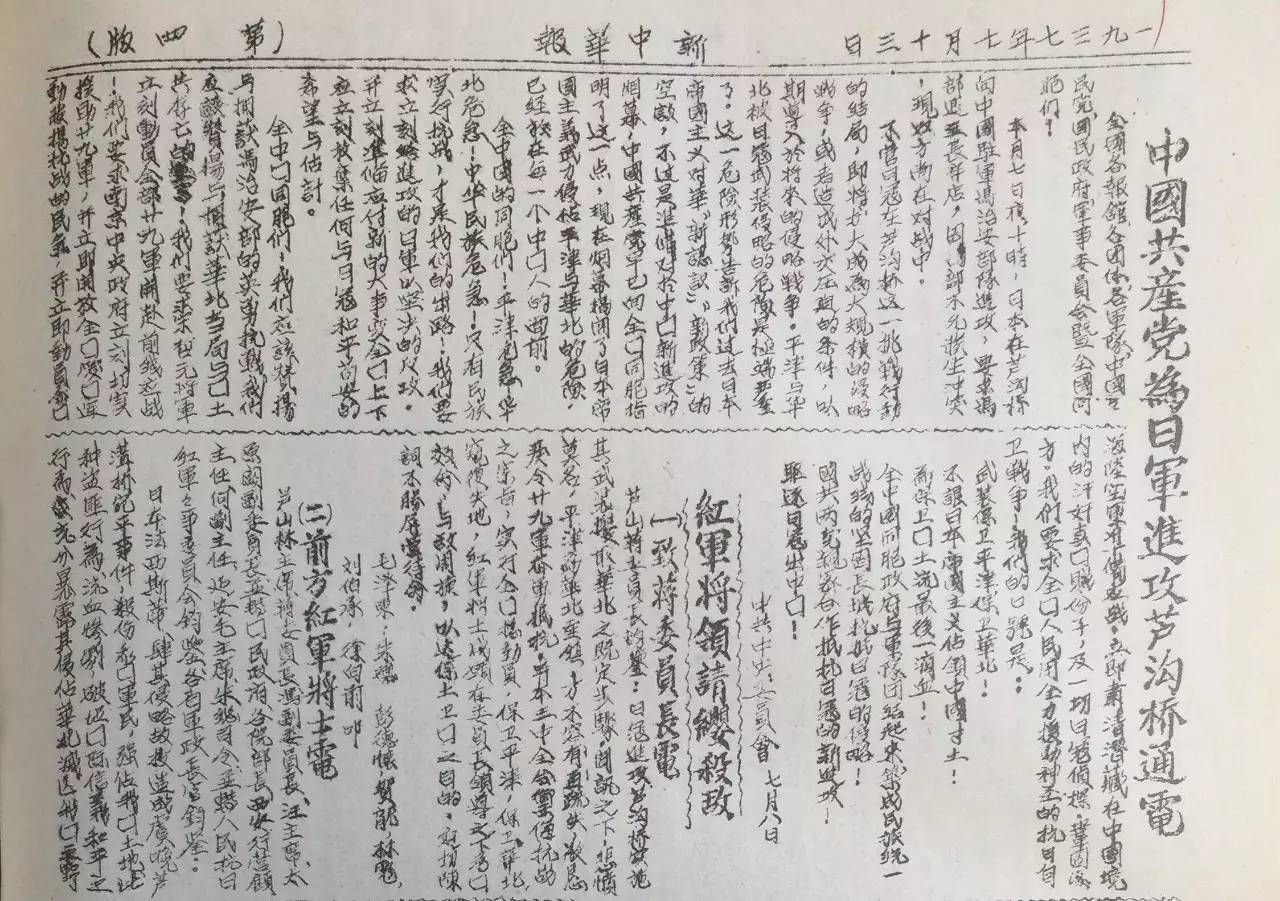 一九三七年七月十三日 新中華報 (第四版)
中國共産党為日軍進攻芦沟桥通電
全國各報館各團体各軍隊中國國
民党國民政府軍事委員会暨全國同
胞们!
本月七日夜十時,日本在芦沟桥
向中國駐軍馮治安部隊進攻,要求馮
部退至長辛店,因馮部不允發生冲突
,現双方尚在对战中。
不管日寇在芦沟桥这一挑战行动
的结局,即将扩大成為大規模的侵略
战争,或者造成外交压迫的条件,以
期導入於将來的侵略战争。平津与华
北被日寇武装侵略的危險是極端严重
了。这一危险形势告訴我们过去日本
帝國主义对华“新認識”“新政策”的
空談,不过是準備对於中口新進攻的
烟幕,中國共產党早已向全口同胞指
明了这一点,現在烟幕揭開了日本帝
國主義武力侵佔平津与華北的危险,
已經放在每一个中口人的面前。
全中國的同胞们!平津危急!华
北危急!中华民族危急!只有民族
实行抗战,才是我们的出路!我们要
求立刻給進攻的日軍以坚决的反攻,
并立刻准俻应付新的大事变全口上下
应立刻放棄任何与日寇和平苟安的
希望与估計。
全中口同胞们!我们应該赞揚
与拥护馮治安部的英勇抗战我们
应該赞揚与拥护華北当局与口土
共存亡的!我们要求宋哲元将軍
立刻動員全部廿九軍開赴前线应战
!我们要求南京中央政府立刻切实
援助廿九軍,并立即開放全口爱口运
動發揚抗战的民气,并立即動員全口
海陸空軍准俻应战,立即肃清潜藏在中國境
内的汗奸賣口賊份子,及一切日寇侦探,鞏固後
方。我們要求全口人民用全力援助神圣的抗日自
卫戰爭!我們的口號是:
武装保卫平津保卫華北!
不讓日本帝國主义佔領中國寸土!
為保卫口土流最後一滴血!
全中國同胞政府与軍隊团结起來築成民族統一
战线的坚固長城抵抗日寇的侵略!
國共两党親密合作抵抗日寇的新進攻!
驱逐日寇出中口!
中共中央委員會 七月八日
紅軍将領請纓殺敌
(一)致蒋委員長電
芦山蒋委員長鈞鉴:日寇進攻芦沟桥实施
其武装攫取華北之既定步驟,聞訊之下,悲憤
莫名,平津为華北重鎮,万不容有再疏失,敬恳
严令廿九軍奋勇抵抗,并本三中全会禦侮抗战
之宗旨,实行全口总動員,保卫平津,保卫華北,
收復失地,紅軍将士咸願在委員長領導之下为口
效命,与敌周旋,以达保土卫口之目的,迫切陳
詞不勝屏营待命。
毛泽東,朱德 彭德懷,賀龍 林彪,
刘伯承 徐向前 叩
(二)前方紅軍將士電
芦山林主席蒋委員長馮副委員長,汪主席,
口民政府各院部長西安行营顧
主任何副主任,延安毛主席朱總司令並轉人民抗日
紅軍軍事委員会鈞鉴各省軍政長官鈞鉴:
日本法西斯蒂,肆其侵略故技造成芦
溝桥事件,殺伤我口軍民,强佔我口土地此
种盗匪行為,流血惨劇,破坏口际信義和平之
行為,充分暴露其侵佔華北滅亡我口之野